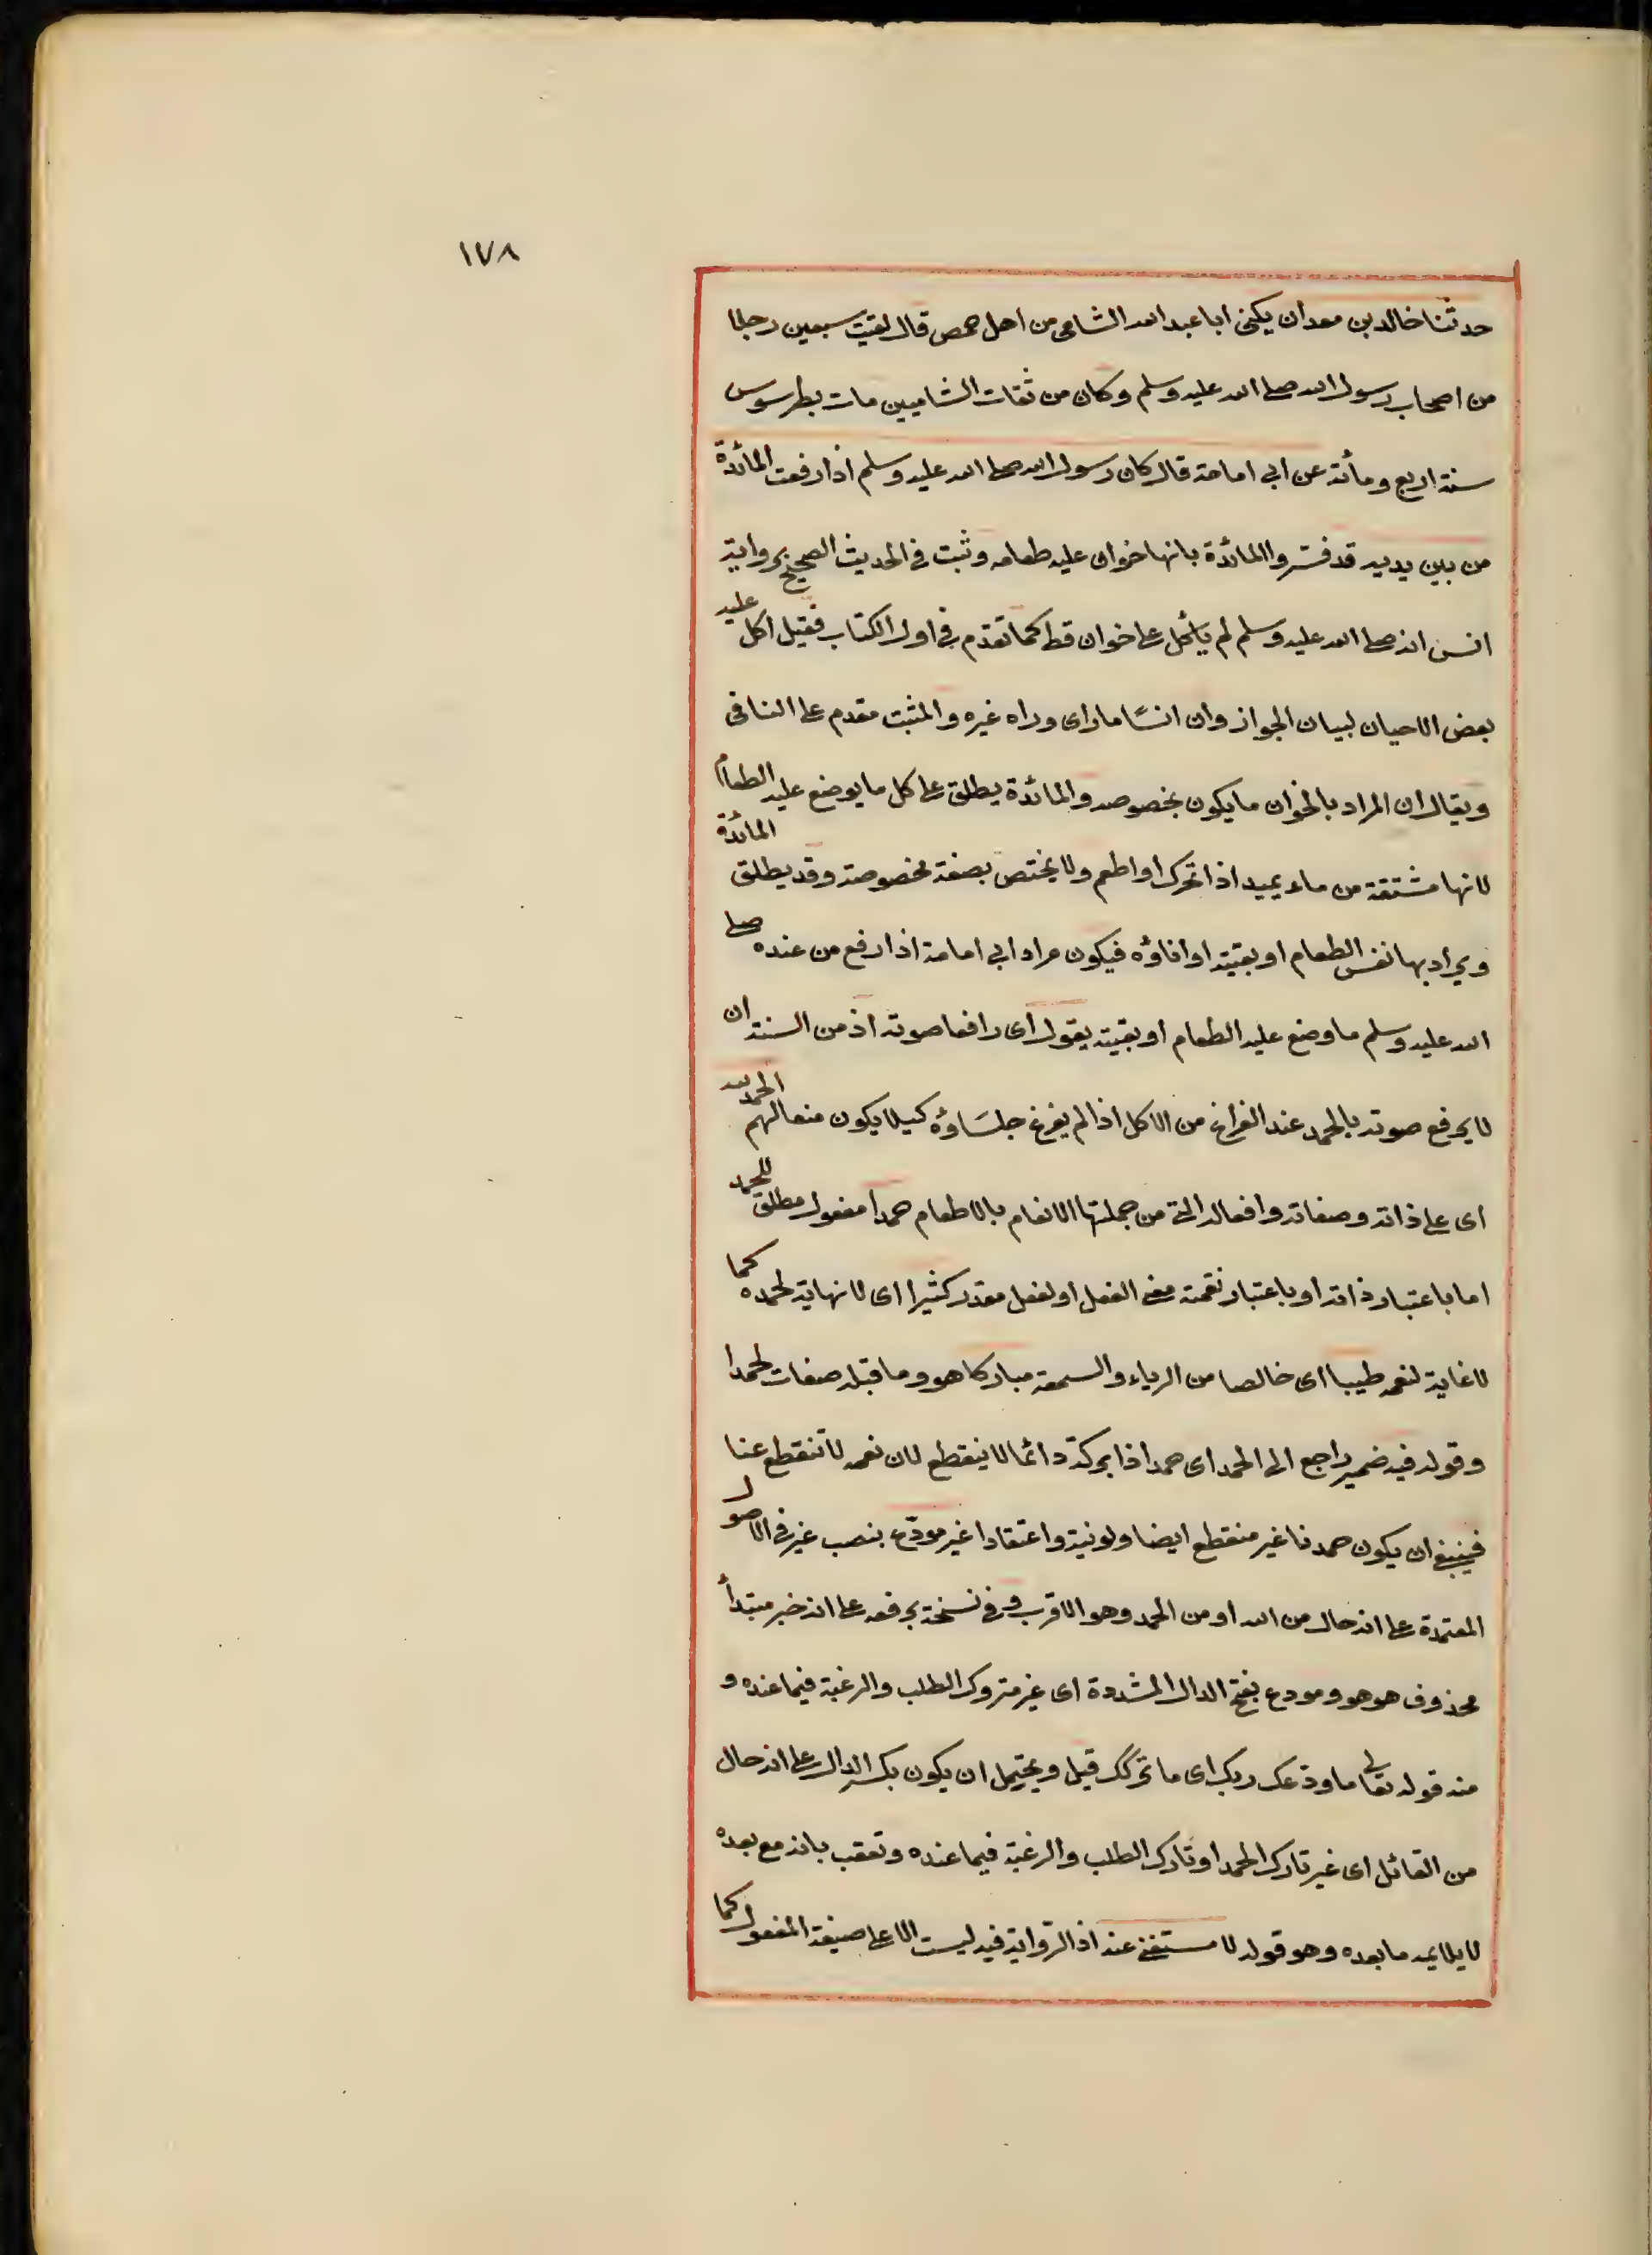 ١٧٨
حدثنا خالد بن معدان يكنى ابا عبد الله الشامى من اهل حمص قال لقيت سبعين رجلا
من اصحاب رسول الله صلى الله عليه وسلم وكان من ثقات الشاميين مات بطرسوس
سنة اربع ومائة عن ابى امامة قال كان رسول الله صلى الله عليه وسلم اذا رفعت المائدة
من بين يديه قد فسّروا المائدة بانها خوان عليه طعام وثبت فى الحديث الصحيح برواية
انس انه صلى الله عليه وسلم لم يأكل على خوان قط كما تقدم فى اول الكتاب فقيل اكل عليه
بعض الاحيان لبيان الجواز وان انسًا ما راى وراه غيره والمثبت مقدم على النافى
ويقال ان المراد بالخوان ما يكون بخصوصه والمائدة يطلق على كل ما يوضع عليه الطعام
لانها مشتقة من ماد يميد اذا تحرك او اطعم ولا يختص بصفة مخصوصة وقد يطلق المائدة
ويراد بها نفس الطعام او بقيته او اناؤه فيكون مراد ابى امامة اذا رفع من عنده صلى
الله عليه وسلم ما وضع عليه الطعام او بقيته يقول اى رافعا صوته اذ من السنة ان
لا يرفع صوته بالحمد عند الفراغ من الاكل اذا لم يفرغ جلساؤه كيلا يكون منعا لهم الحمد لله
اى على ذاته وصفاته وافعاله التى من جملتها الانعام بالاطعام حمدا مفعول مطلق للحمد
اما باعتبار ذاته او باعتبار تضمنه معنى الفعل او لفعل مقدر كثيرا اى لا نهاية لحمده كما
لا غاية لنعمه طيبا اى خالصا من الرياء والسمعة مباركا هو وما قبله صفات لحمدا
وقوله فيه ضمير راجع الى الحمد اى حمدا ذا بركة دائما لا ينقطع لان نعمه لا تنقطع عنا
فينبغى ان يكون حمدنا غير منقطع ايضا ولو نية واعتقادا غير مودّع بنصب غير فى الاصول
المعتمدة على انه حال من الله او من الحمد وهو الاقرب وفى نسخة برفعه على انه خبر مبتدأ
محذوف هو هو ومودع بفتح الدال المشددة اى غير متروك الطلب والرغبة فيما عنده و
منه قوله تعالى ما ودّعك ربك اى ما تركك قيل ويحتمل ان يكون بكسر الدال على انه حال
من القائل اى غير تارك الحمد او تارك الطلب والرغبة فيما عنده وتعقب بانه مع بعده
لا يلايمه ما بعده وهو قوله لا مستغنى عنه اذ الرواية فيه ليست الا على صيغة المفعول كما